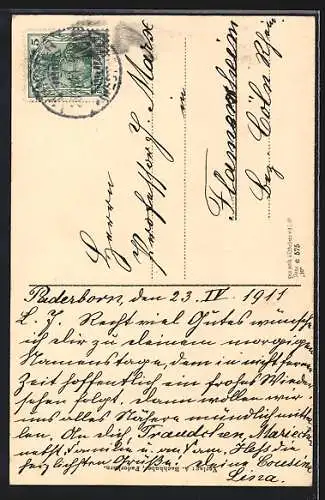 5
Herrn
Professor J. Marx
in
Flamersheim
Bez. Cöln Rhein
Paderborn, den 23. IV. 1911
L. J. Recht viel Gutes wünsche
ich dir zu deinem morgigen
Namenstage, dem in nicht ferner
Zeit hoffentlich ein frohes Wieder-
sehen folgt. Dann wollen wir
uns alles Nähere mündlich mittei-
len. An dich, Traudchen, Mariech.
nebst Familie u. am. Hess die
herzlichsten Grüße! deine Cousine
Lina.